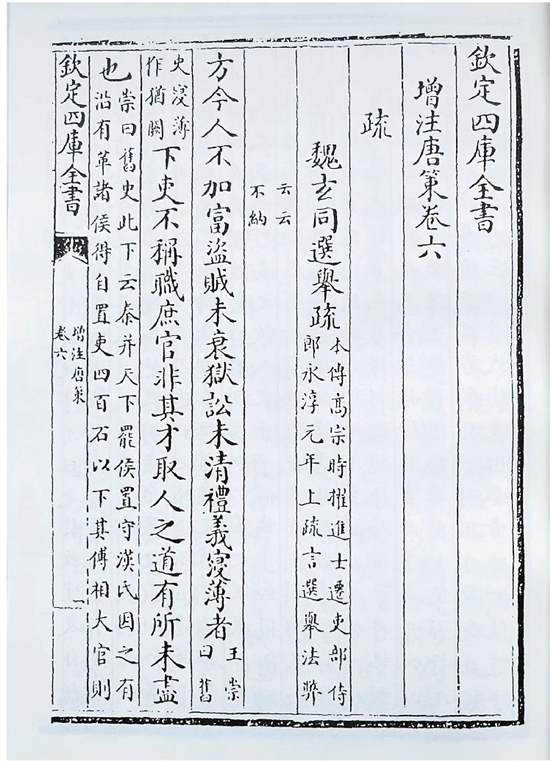 欽定四庫全書
增注唐策卷六
疏
魏玄同選舉疏本傳高宗時擢進士遷吏部侍
郎永淳元年上疏言選舉法弊
云云
不納
方今人不加富盜賊未衰獄訟未清禮義寖薄者王崇
曰舊
史寖薄
作猶闕下吏不稱職庶官非其才取人之道有所未盡
也崇曰舊史此下云秦并天下罷侯置守漢氏因之有
沿有革諸侯得自置吏四百石以下其傅相大官則
欽定四庫全書
增注唐策
卷六